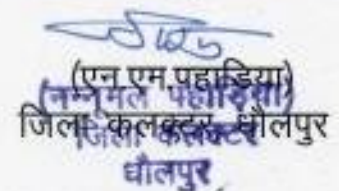 (एन एम पहाड़िया)
(नन्नूमल पहाड़िया)
जिला कलक्टर, धौलपुर
जिला कलक्टर
धौलपुर